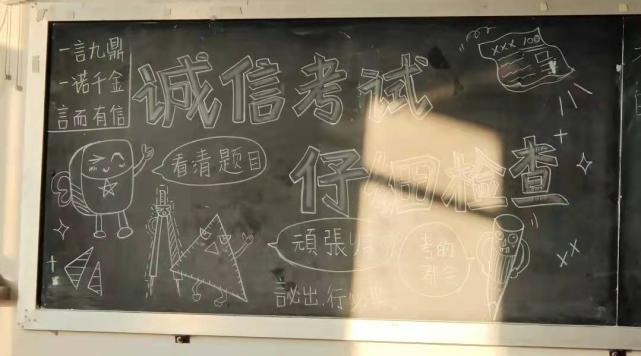 一言九鼎
一诺千金
言而有信
诚信考试
仔细检查
XXX 100
看清题目
考的
都会
言必出.行必